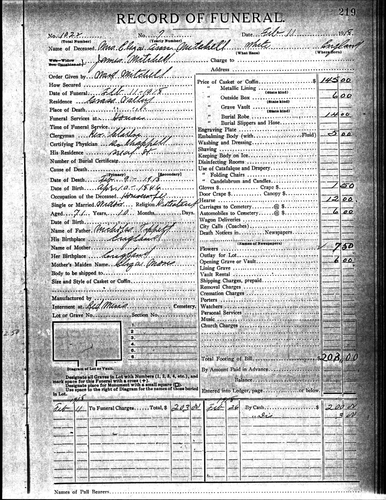 219
RECORD OF FUNERAL
No. 1922 No. 7 Date Feb 11 1918
(Total Number) (Yearly Number)
Name of Deceased Mrs. Eliza Ann Mitchell White England
James Mitchell Charge to
Address
Order Given by Mitchell
How Secured
Date of Funeral Feb 11-1918
Residence Grass Valley
Place of Death
Funeral Services at
Time of Funeral Service
Clergyman Rev.
Certifying Physician Dr. Chappell
His Residence
Number of Burial Certificate
Cause of Death
Date of Death
Date of Birth Apr 10-1846
Occupation of the Deceased Housewife
Single or Married Widow Religion Methodist
Aged 71 Years 10 Months. Days.
Name of Father Nicholas
His Birthplace England
Name of Mother
Her Birthplace England
Mother's Maiden Name Eliza
Body to be shipped to
Size and Style of Casket or Coffin
Manufactured by
Interment at Cemetery.
Lot or Grave No. Section No.
Diagram of Lot or Vault.
Designate all Graves in Lot with Numbers (1, 2, 3, 4, etc.), and
mark space for this Funeral with a cross (+).
Designate place for Monument with a small square
Use space to the right of Diagram for names of those buried
in Lot.
Price of Casket or Coffin $ 145 00
" Metallic Lining
(State kind)
" Outside Box 6 00
(State kind)
" Grave Vault
(State kind)
" Burial Robe 14 00
" Burial Slippers and Hose
Engraving Plate
Embalming Body (with Fluid) 5 00
Washing and Dressing
Shaving
Keeping Body on Ice
Disinfecting Rooms
Use of Catafalque and Drapery
" Folding Chairs
" Candelabrum and Candles
Gloves $ Crape $ 1 50
Door Crape $ Canopy $
Hearse 12 00
Carriages to Cemetery @ $
Automobiles to Cemetery @ $ 6 00
Wagon Deliveries
City Calls (Coaches)
Death Notices in Newspapers
(Names of Newspapers)
Flowers 7 50
Outlay for Lot
Opening Grave or Vault 6 00
Lining Grave
Vault Rental
Shipping Charges, prepaid
Removal Charges
Cremation Charges
Porters
Watchers
Personal Services
Music
Church Charges
Total Footing of Bill $ 203.00
By Amount Paid in Advance
Balance
Entered into Ledger, page or below.
1918 1918
Feb 11 To Funeral Charges Total, $ 203 00 Feb 26 By Cash $ 200 00
" Dis
Names of Pall Bearers.